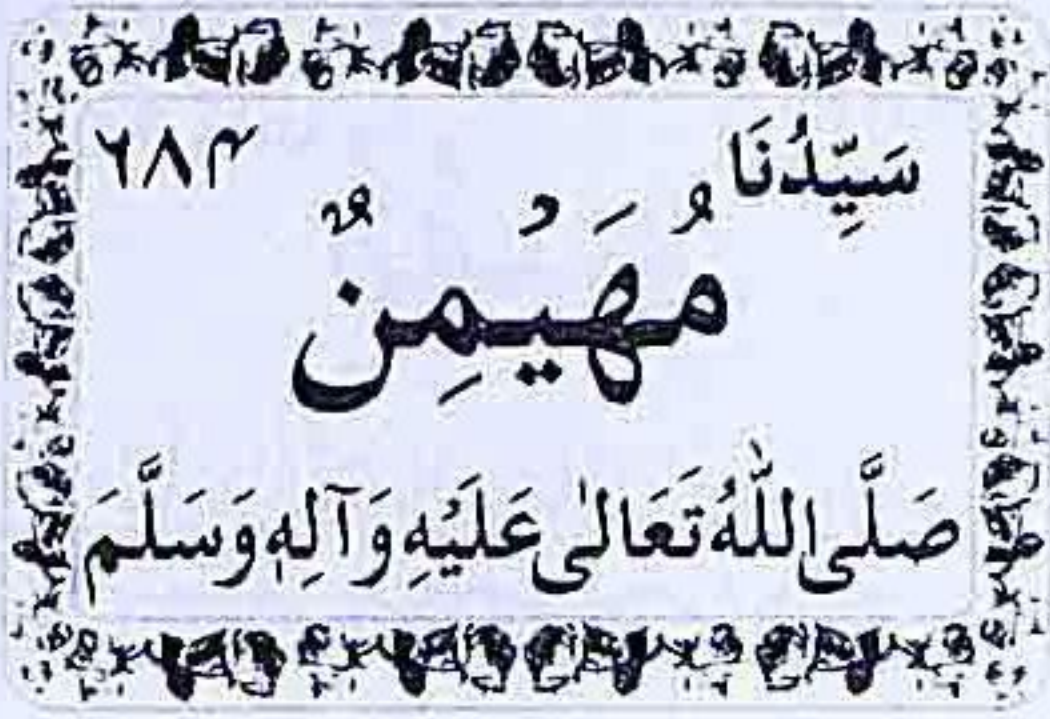 سَيِّدُنَا ٦٨۴
مُهَيْمِنٌ
صَلَّی اللّٰهُ تَعَالٰی عَلَيْهِ وَآلِهٖ وَسَلَّمَ